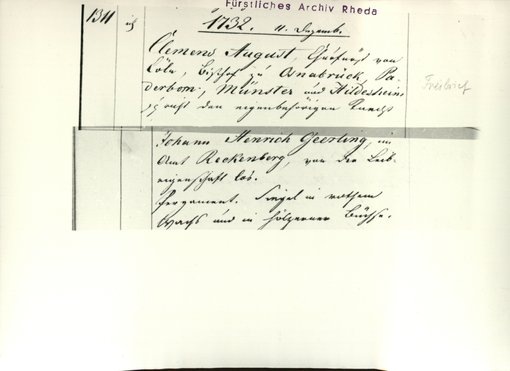 Fürstliches Archiv Rheda
1311
1732. 11. Dezemb.
Clemens August, Churfürst von
Cöln, Bischof zu Osnabrück, Pa-
derborn, Münster und Hildesheim,
Freibrief
den eigenbehörigen Knecht
Johann Henrich Geerling, im
Amt Reckenberg, von der Leib-
eigenschaft los.
Pergament. Siegel in rothem
Wachs und in hölzerner Büchse.